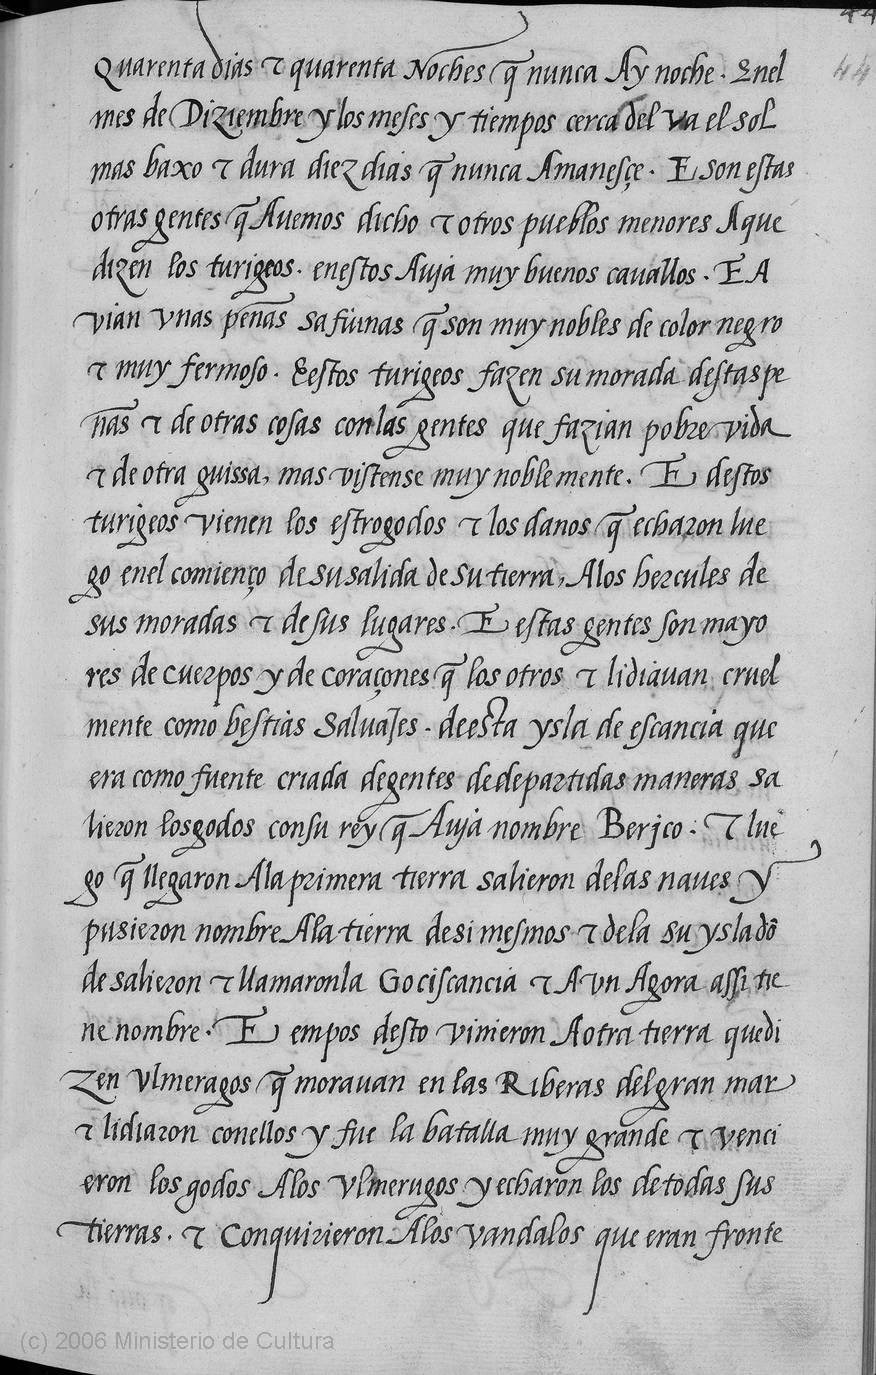 44
44
Quarenta dias τ quarenta Noches q̃ nunca Ay noche · Enel
mes de Diziembre y los meses y tiempos cerca del va el sol
mas baxo τ dura diez dias q̃ nunca Amanesçe · E son estas
otras gentes q̃ Auemos dicho τ otros pueblos menores A que
dizen los turigeos · enestos Auja muy buenos cauallos · E A
vian vnas peñas safiunas q̃ son muy nobles de color negro
τ muy fermoso · Eestos turigeos fazen su morada destas pe
ñas τ de otras cosas con las gentes que fazian pobre vida
τ de otra guissa, mas vistense muy noble mente · E destos
turigeos vienen los estrogodos τ los danos q̃ echaron lue
go enel comienço de su salida de su tierra, Alos hercules de
sus moradas τ de sus lugares · E estas gentes son mayo
res de cuerpos y de coraçones q̃ los otros τ lidiauan cruel
mente como bestias salvajes · de esta ysla de escancia que
era como fuente criada de gentes de departidas maneras sa
lieron los godos con su rey q̃ Auja nombre Berjco · τ lue
go q̃ llegaron Ala primera tierra salieron delas naves y
pusieron nombre Ala tierra desi mesmos τ dela su ysla dõ
de salieron τ llamaronla Gociscancia τ A vn Agora assi tie
ne nombre · E empos desto vinieron A otra tierra quedi
zen vlmeragos q̃ morauan en las Riberas del gran mar
τ lidiaron conellos y fue la batalla muy grande τ venci
eron los godos Alos vlmerugos y echaron los de todas sus
tierras · τ Conquirieron Alos vandalos que eran fronte
(c) 2006 Ministerio de Cultura